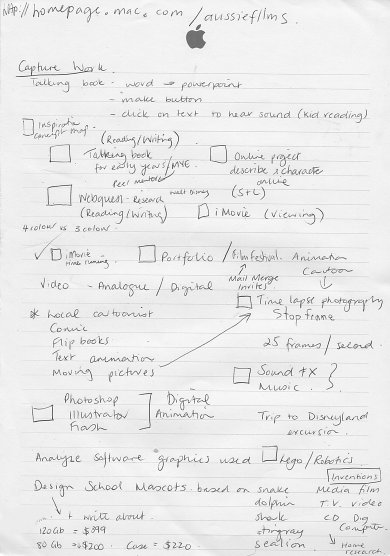 http://homepage.mac.com/aussiefilms.
Capture Work.
Talking book - word → powerpoint
- make button
- click on text to hear sound (kid reading)
Inspiration concept map
(Reading/Writing)
Talking book for early years/MYE
Online project describe a character online (S+L)
Peer mentored
Webquest - Research (Reading/Writing)
Walt Disney
iMovie (Viewing)
4 colour vs 3 colour
iMovie time running
Portfolio / Film Festival
Animation
Mail Merge Invites
Cartoon
Video - Analogue / Digital
Time lapse photography
Stop frame
* Local cartoonist
Comic
Flip books
25 frames / second
Text animation
Moving pictures
Sound FX
Music
Photoshop
Illustrator
Flash
Digital Animation
Trip to Disneyland
excursion.
Analyze Software graphics used
Lego/Robotics
Inventions
Design School Mascots based on snake
dolphin
shark
stingray
sealion
Media film
T.V. video
CD Dig
Computer
Home research
+ write about
120Gb = $899
80 Gb = +$200 Case = $220